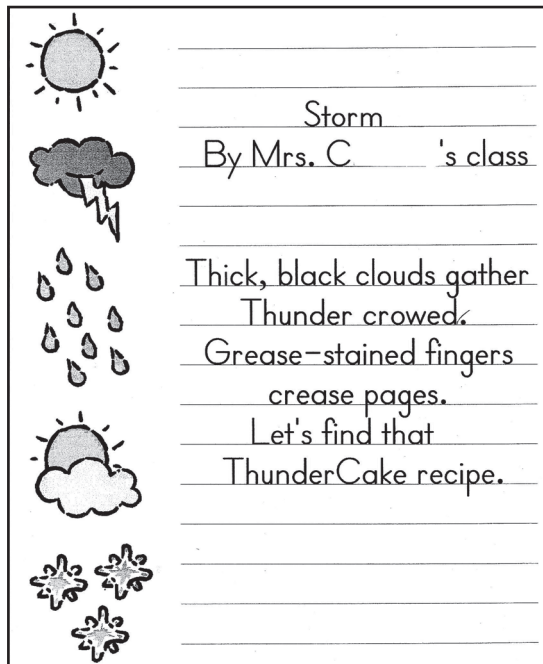 Storm
By Mrs. C 's class
Thick, black clouds gather
Thunder crowed.
Grease-stained fingers
crease pages.
Let's find that
ThunderCake recipe.